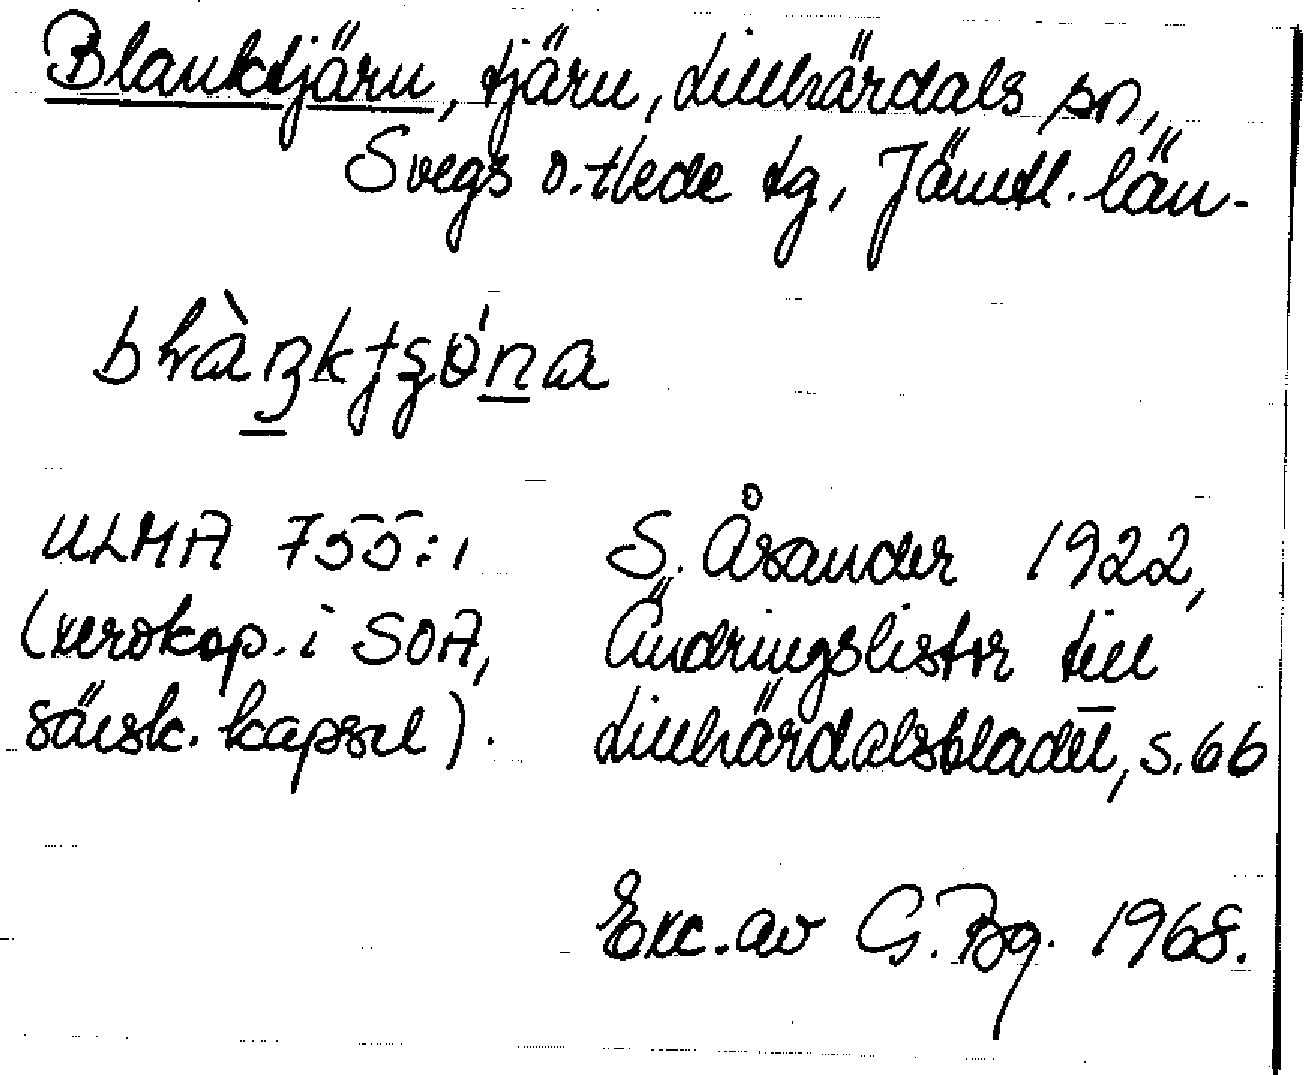 Blanktjärn, tjärn, Lillhärdals sn,
Svegs o. Hede tg, Jämtl. län.
ULMA 755:1
(xerokop. i SOA,
särsk. kapsel).
S. Åsander 1922,
Ändringslistor till
Lillhärdalsbladet, s. 66
Exc. av G. Bg. 1968.